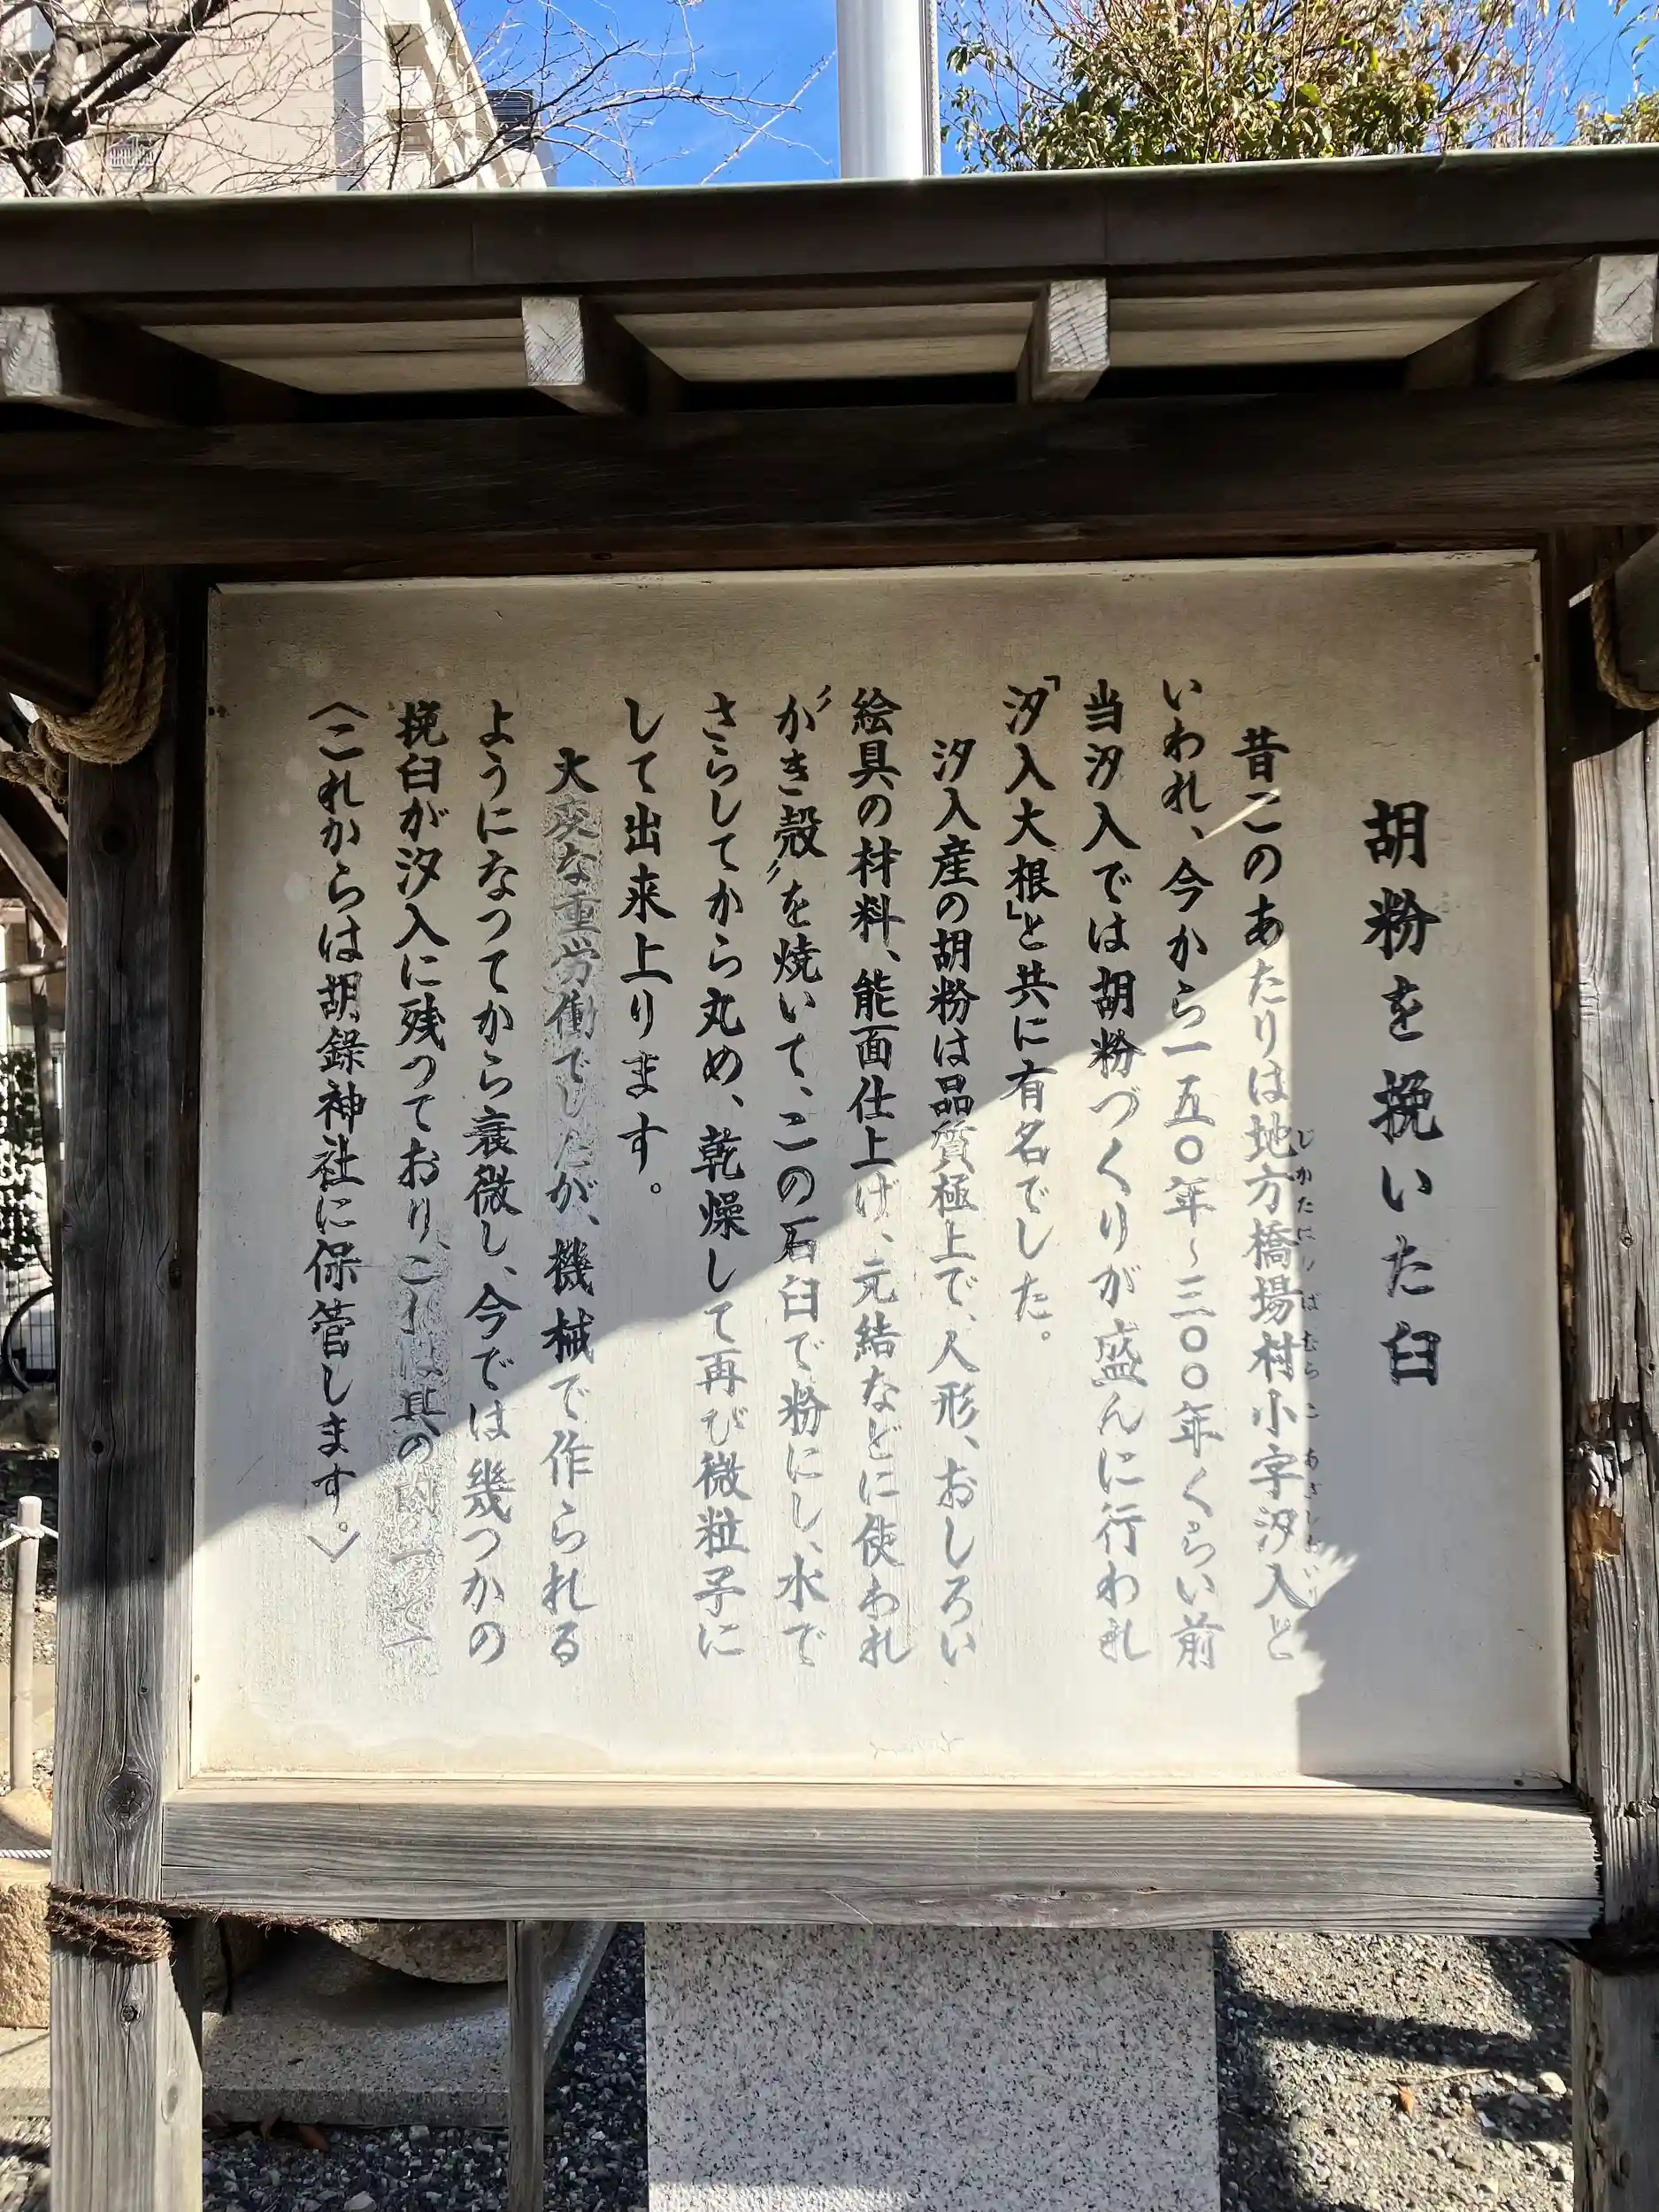 胡粉を挽いた臼
昔このあたりは地方橋場村小字汐入と
じかたはしばむらこあざしおいり
いわれ、今から一五〇年~三〇〇年くらい前
当汐入では胡粉づくりが盛んに行われ
「汐入大根」と共に有名でした。
汐入産の胡粉は品質極上で、人形、おしろい
絵具の材料、能面仕上げ、元結などに使われ
〝かき殻〟を焼いて、この石臼で粉にし、水で
さらしてから丸め、乾燥して再び微粒子に
して出来上ります。
大変な重労働でしたが、機械で作られる
ようになってから衰微し、今では幾つかの
挽臼が汐入に残っており、これは其の内の一つで
〈これからは胡録神社に保管します。〉